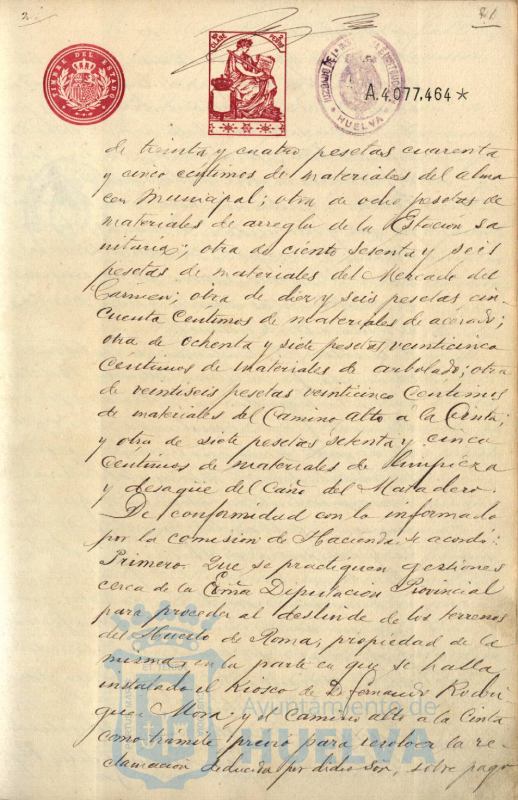 21
TIMBRE DEL ESTADO
A.4.077.464 *
HUELVA
de treinta y cuatro pesetas cuarenta
y cinco centimos de materiales del alma
cen Municipal; otra de ocho pesetas de
materiales de arreglo de la Estación sa
nitaria; otra de ciento sesenta y seis
pesetas de materiales del Mercado del
Carmen; otra de diez y seis pesetas cin
cuenta centimos de materiales de acerado;
otra de ochenta y siete pesetas veinticinco
centimos de materiales de arbolado; otra
de veintiseis pesetas veinticinco centimos
de materiales del Camino alto á la Cinta;
y otra de siete pesetas setenta y cinco
centimos de materiales de limpieza
y desagüe del Caño del Matadero.
De conformidad con lo informado
por la comision de Hacienda se acordó:
Primero. Que se practiquen gestiones
cerca de la Exma Diputacion Provincial
para proceder al deslinde de los terrenos
del Huerto de Roma, propiedad de la
misma, en la parte en que se halla
instalado el Kiosco de D. Fernando Rodri
guez Mora, y el Camino alto a la Cinta
como tramite previo para resolver la re
clamación deducida por dicho Sor, sobre pago
Ayuntamiento de
HUELVA